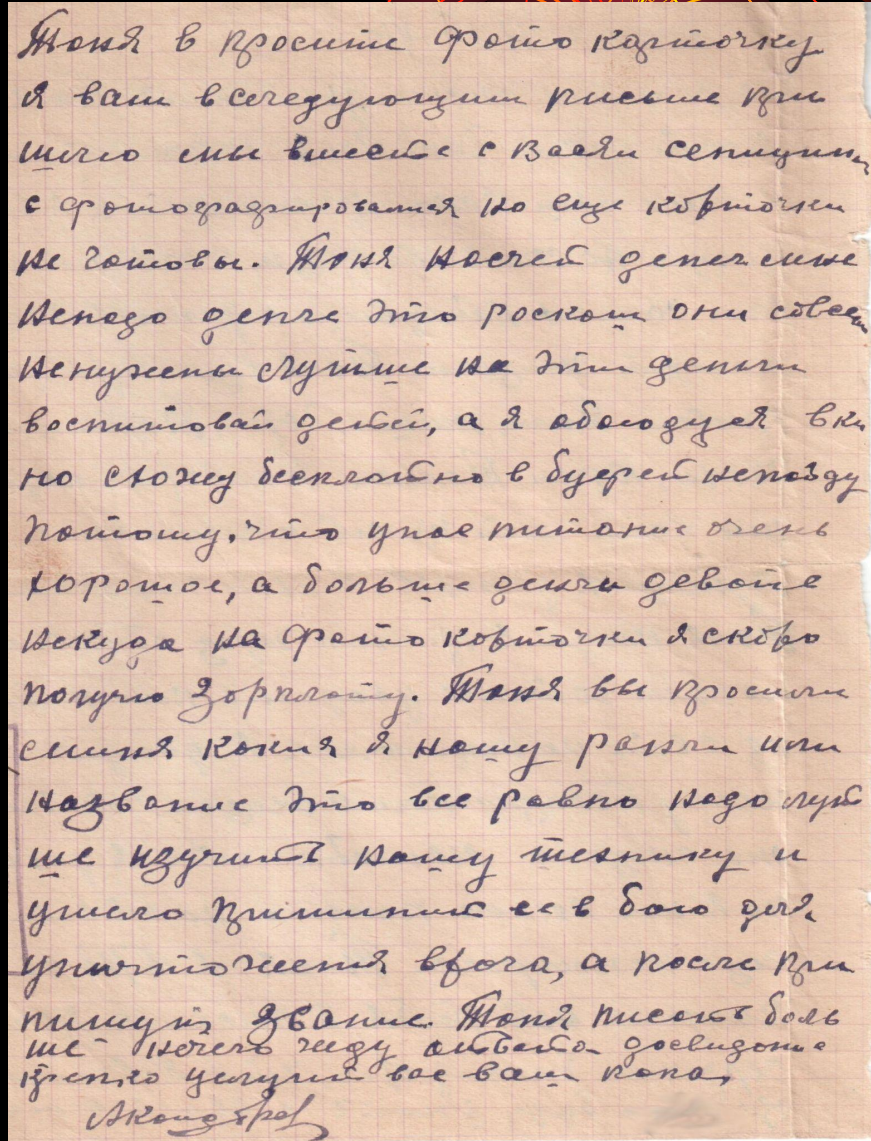 Тоня в просите фото карточку
я вам вследующим письме при
шлю мы вместе с Васяй
с фотографировался но еще корточки
не готовы. Тоня насчет денег мне
ненадо денги это роскош они совсем
ненужены лутше на эти деньги
воспитовай детей, а я обо в ки
но схожу бесплотно в буфет непойду
потому, что унас питание очень
хорошое, а больше денги девоте
некуда на фото корточки я скоро
получю Зорплоту. Тоня вы просили
сминя кокия я ношу ранги или
название это все ровно надо лут
ше изучить нашу технику и
умело приминить ее в бою для
уничтожения врога, а после при
пишут звание. Тоня писоть боль
ше нечего жду ответа досвидоние
крепко целует вас ваш папа,